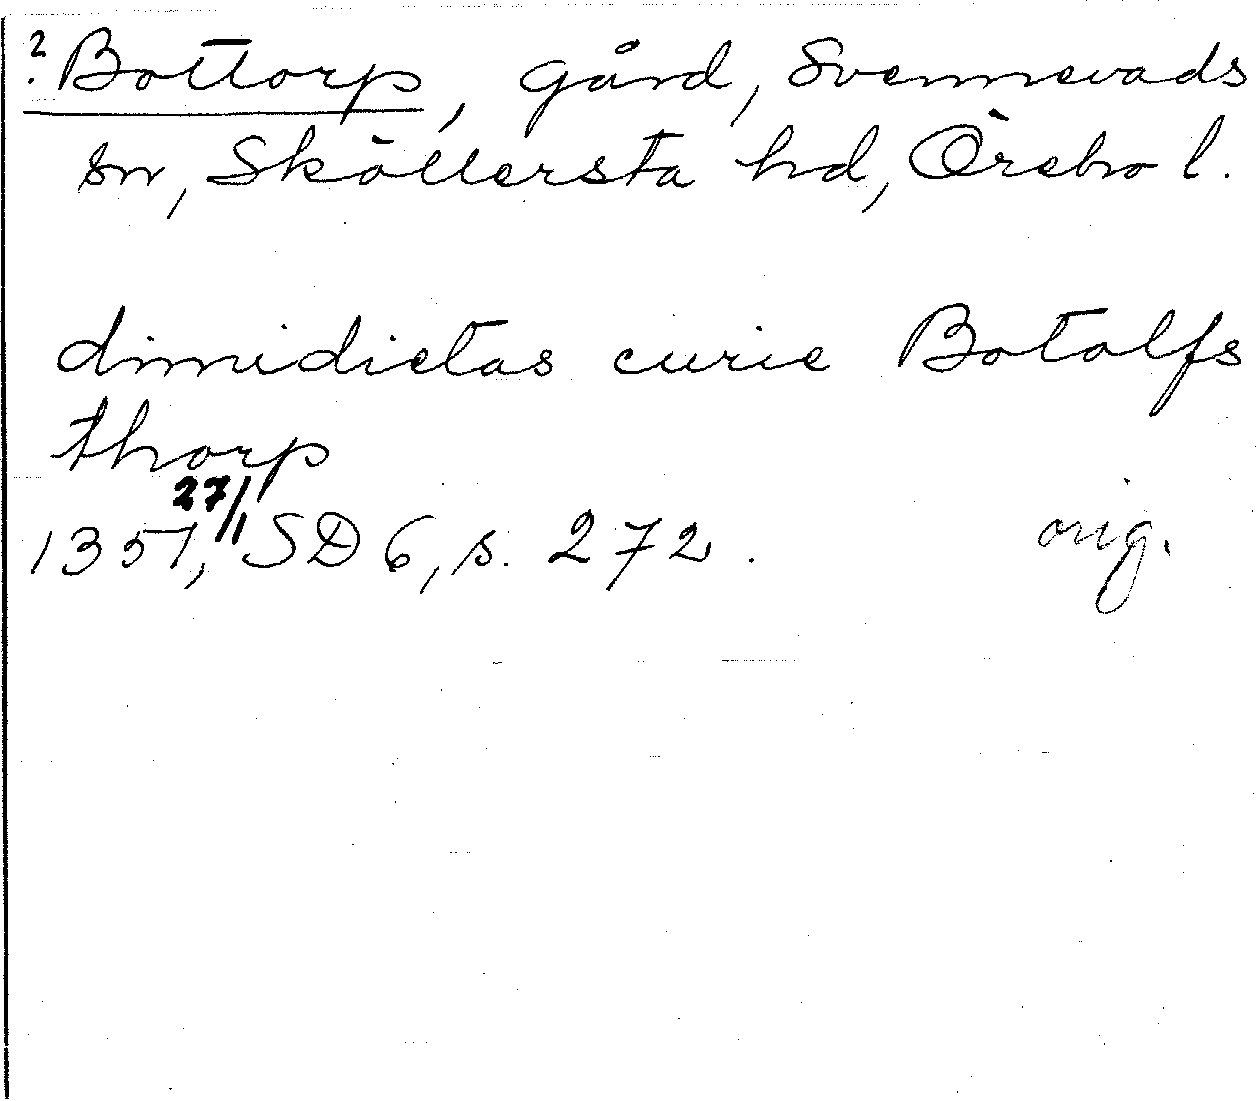 ? Bottorp, gård, Svennevads
sn, Sköllersta hd, Örebro l.
dimidietas curie Botolfs
thorp
1351, 27/1 SD 6, s. 272. orig.